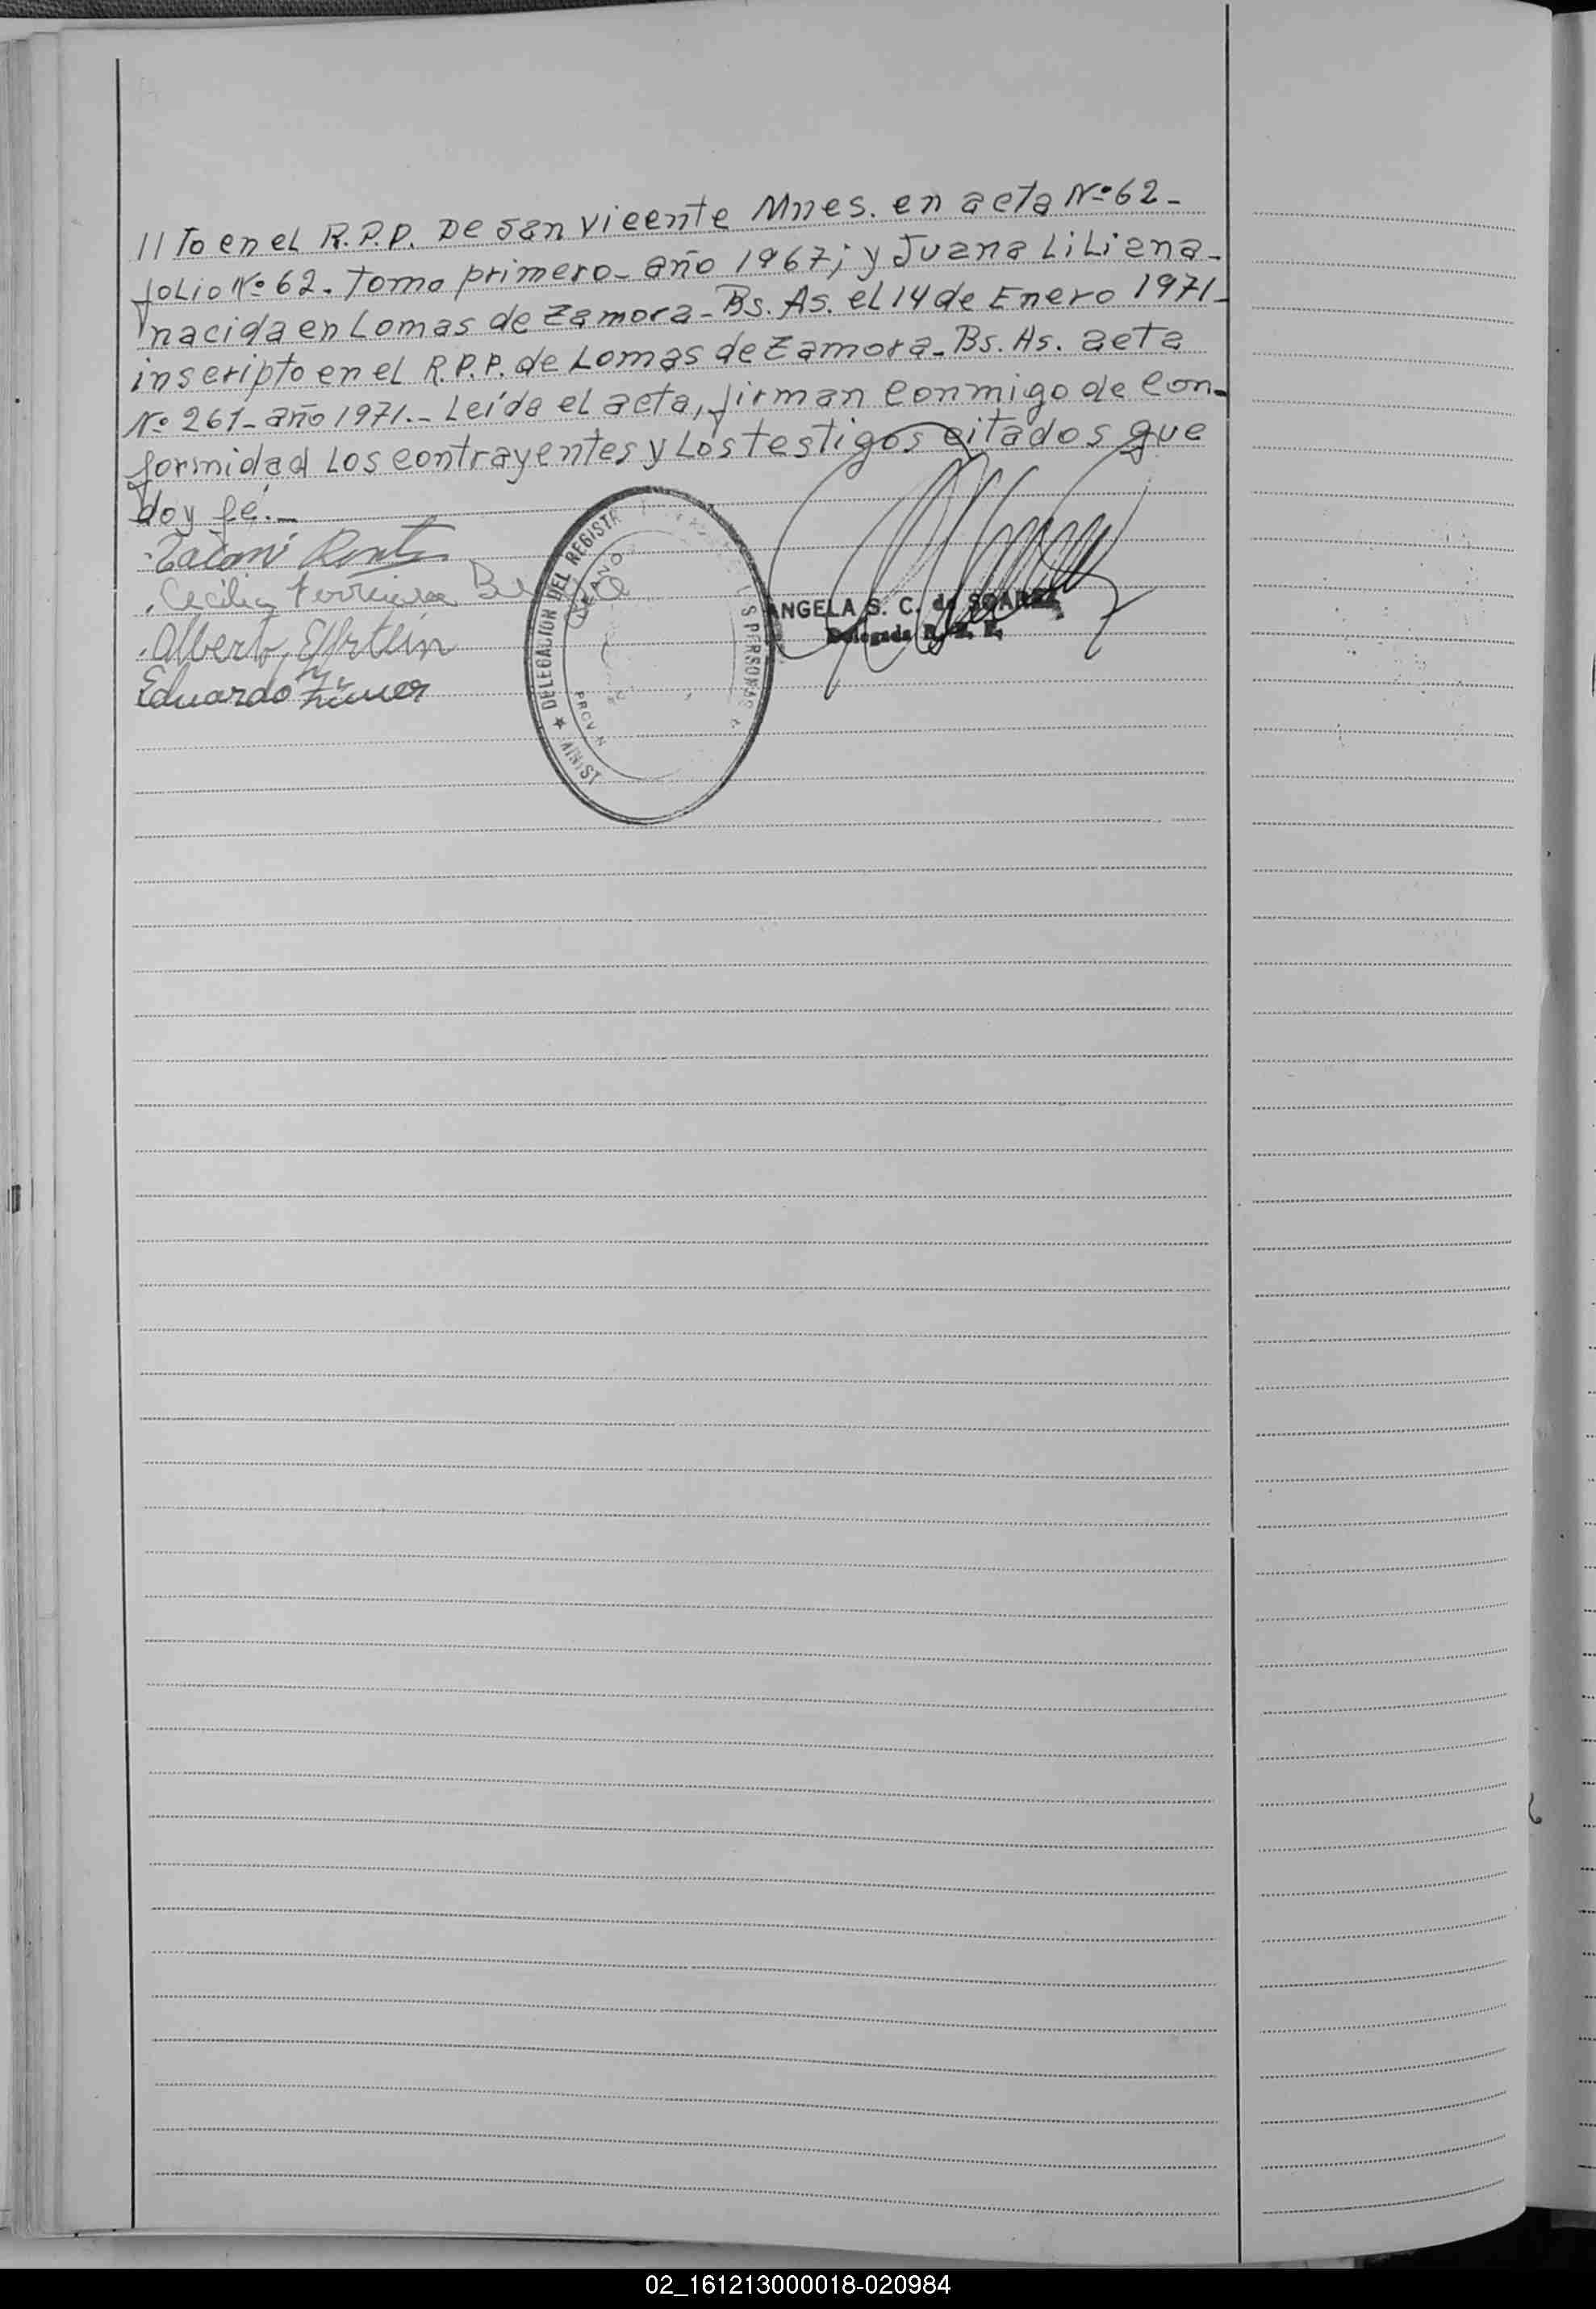 // To en el R.P.P. De San Vicente Mnes. en acta Nº 62-
folio Nº 62. Tomo primero- año 1967; y Juana Liliana-
nacida en Lomas de Zamora- Bs. As. el 14 de Enero 1971-
inscripto en el R.P.P. de Lomas de Zamora- Bs. As. acta
Nº 261- año 1971.- Leída el acta, firman conmigo de con-
formidad los contrayentes y los testigos citados que
doy fé.-
Cecilia Ferreira
Alberto
Eduardo
DELEGACION DEL REGISTR
S PERSONAS
PROV
MINIST
ANGELA S. C. de SOAREZ
Delegada R. P. P.
02_161213000018-020984